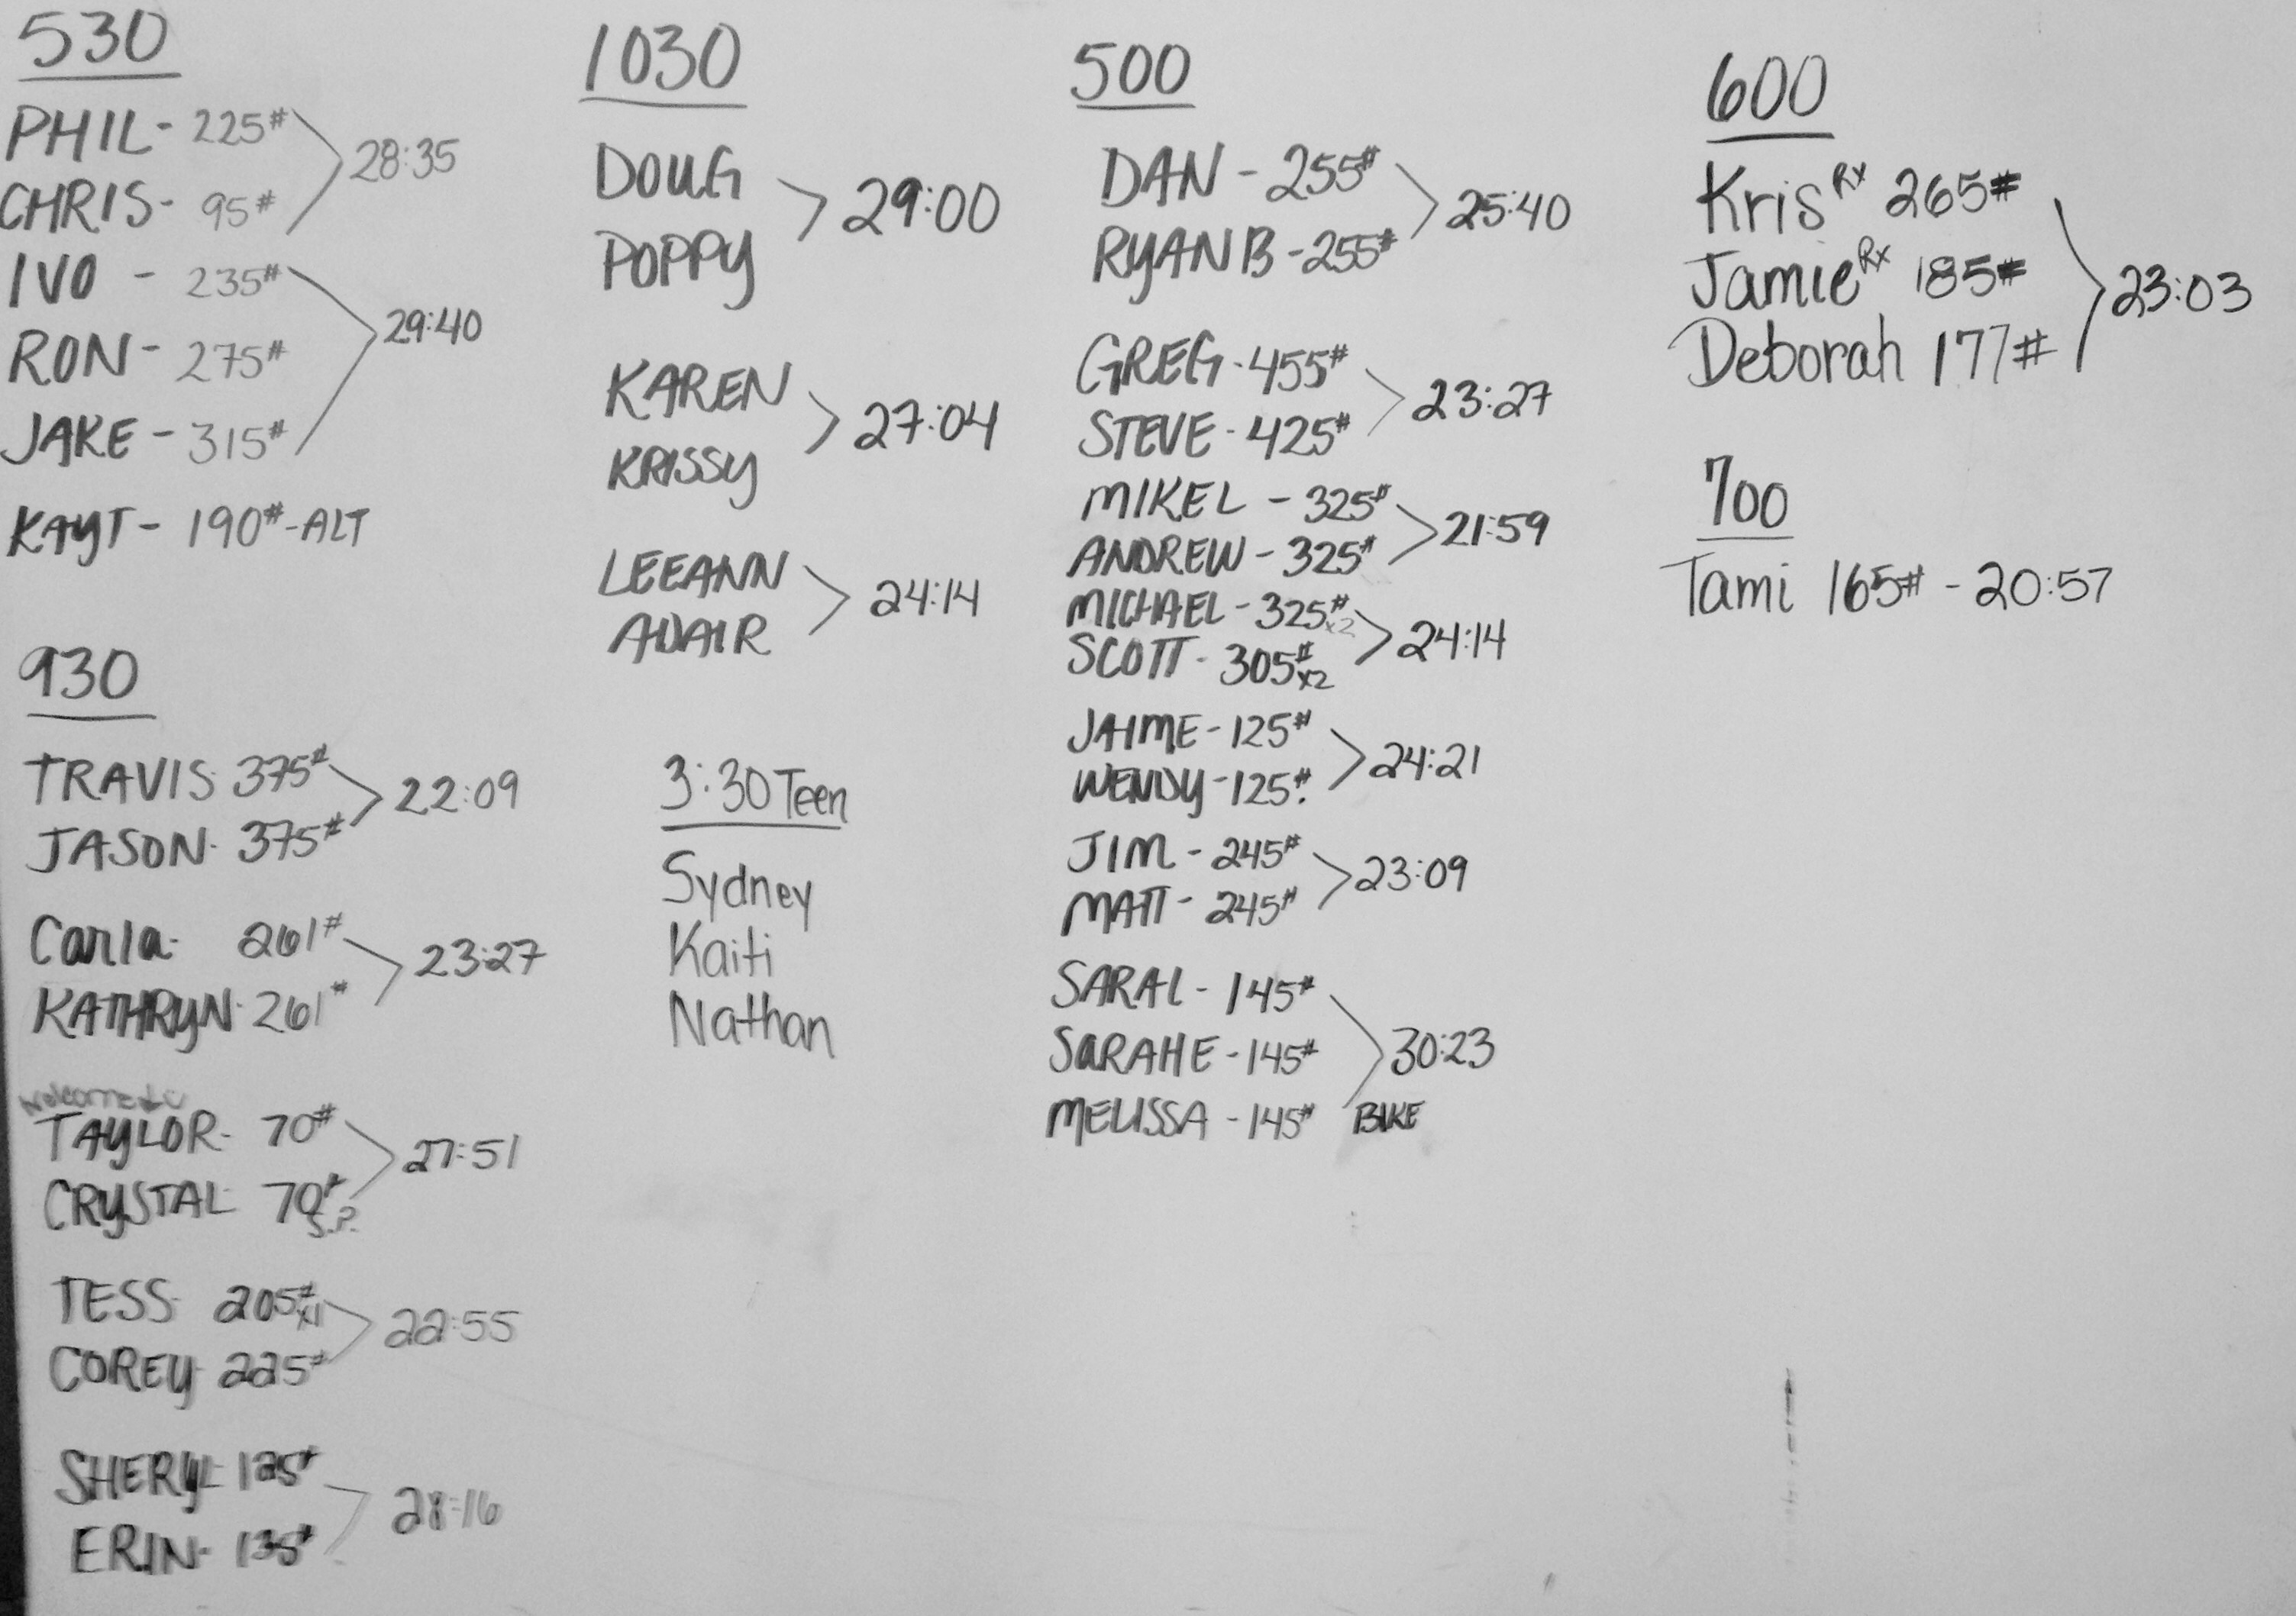 530
PHIL- 225#
CHRIS- 95#
28:35
IVO - 235#
RON- 275#
JAKE - 315#
29:40
KAYT- 190#-ALT
930
TRAVIS 375#
JASON- 375#
22:09
Carla- 261#
KATHRYN- 261#
23:27
TAYLOR- 70#
CRYSTAL 70#
27:51
TESS- 205# x1
COREY 225#
22:55
SHERYL 125#
ERIN- 135#
28:16
1030
DOUG
POPPY
29:00
KAREN
KRISSY
27:04
LEEANN
ADAIR
24:14
3:30 Teen
Sydney
Kaiti
Nathan
500
DAN - 255#
RYAN B -255#
25:40
GREG - 455#
STEVE - 425#
23:27
MIKEL - 325#
ANDREW - 325#
21:59
MICHAEL - 325# x2
SCOTT - 305# x2
24:14
JAIME - 125#
WENDY -125#.
24:21
JIM - 245#
MATT - 245#
23:09
SARAL - 145#
SARAHE -145#
MELISSA -145# BIKE
30:23
600
Kris Rx 265#
Jamie Rx 185#
Deborah 177#
23:03
700
Tami 165# - 20:57